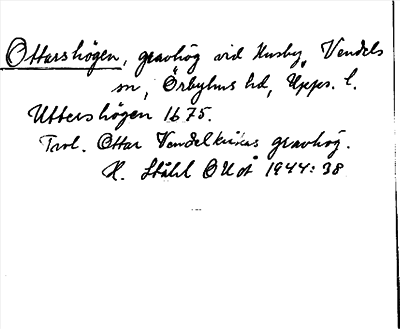 Ottarshögen, gravhög vid Husby, Vendels
sn, Örbyhus hd, Upps. l.
Uttershögen 1675.
Trol. Ottar Vendelkråkas gravhög.
H. Ståhl OUoÅ 1944:38